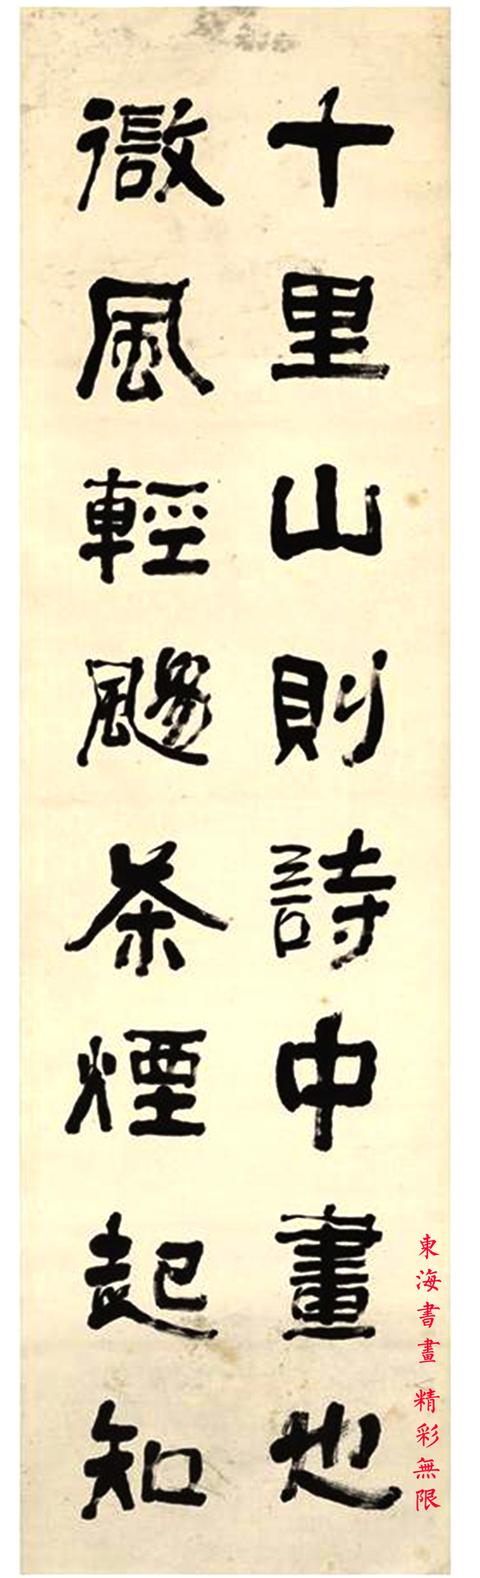 十里山則詩中畫也
微風輕颺茶煙起知
東海書畫 精彩無限